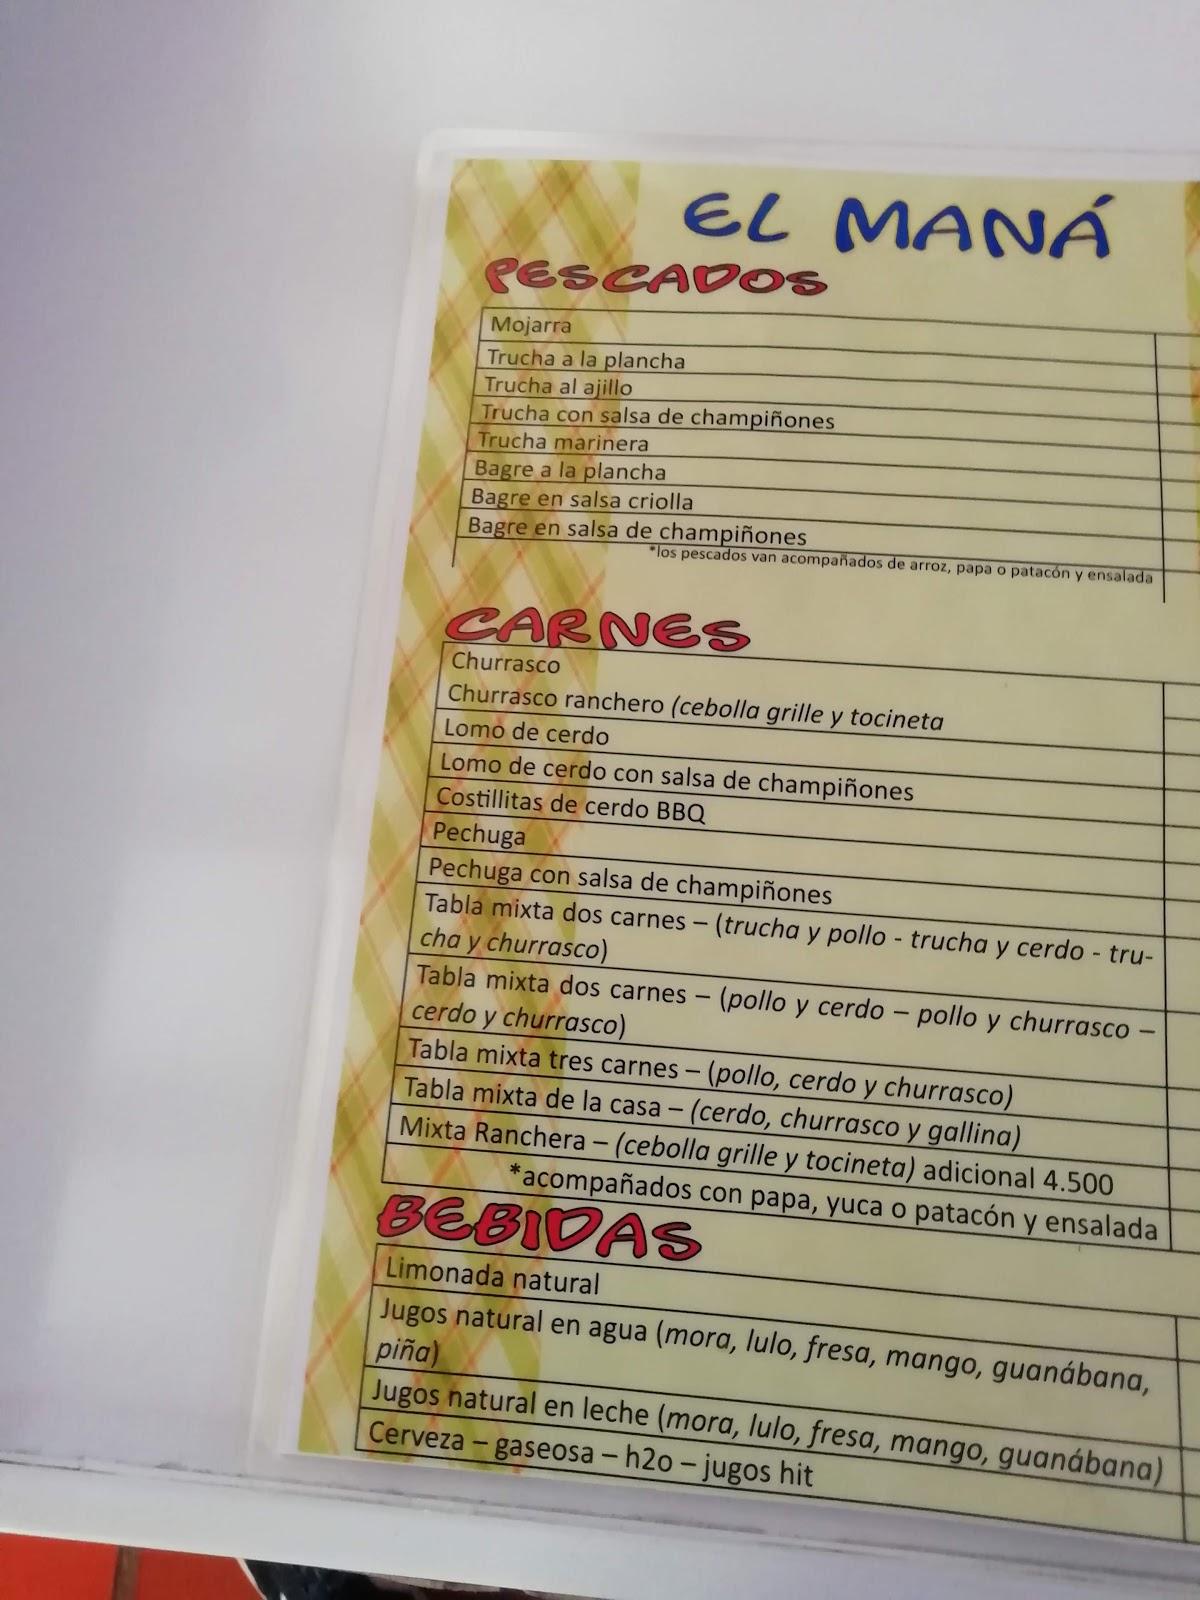 EL MANÁ
PESCADOS
Mojarra
Trucha a la plancha
Trucha al ajillo
Trucha con salsa de champiñones
Trucha marinera
Bagre a la plancha
Bagre en salsa criolla
Bagre en salsa de champiñones
*los pescados van acompañados de arroz, papa o patacón y ensalada
CARNES
Churrasco
Churrasco ranchero (cebolla grille y tocineta
Lomo de cerdo
Lomo de cerdo con salsa de champiñones
Costillitas de cerdo BBQ
Pechuga
Pechuga con salsa de champiñones
Tabla mixta dos carnes – (trucha y pollo - trucha y cerdo - tru-
cha y churrasco)
Tabla mixta dos carnes – (pollo y cerdo – pollo y churrasco –
cerdo y churrasco)
Tabla mixta tres carnes – (pollo, cerdo y churrasco)
Tabla mixta de la casa – (cerdo, churrasco y gallina)
Mixta Ranchera – (cebolla grille y tocineta) adicional 4.500
*acompañados con papa, yuca o patacón y ensalada
BEBIDAS
Limonada natural
Jugos natural en agua (mora, lulo, fresa, mango, guanábana,
piña)
Jugos natural en leche (mora, lulo, fresa, mango, guanábana)
Cerveza – gaseosa – h2o – jugos hit